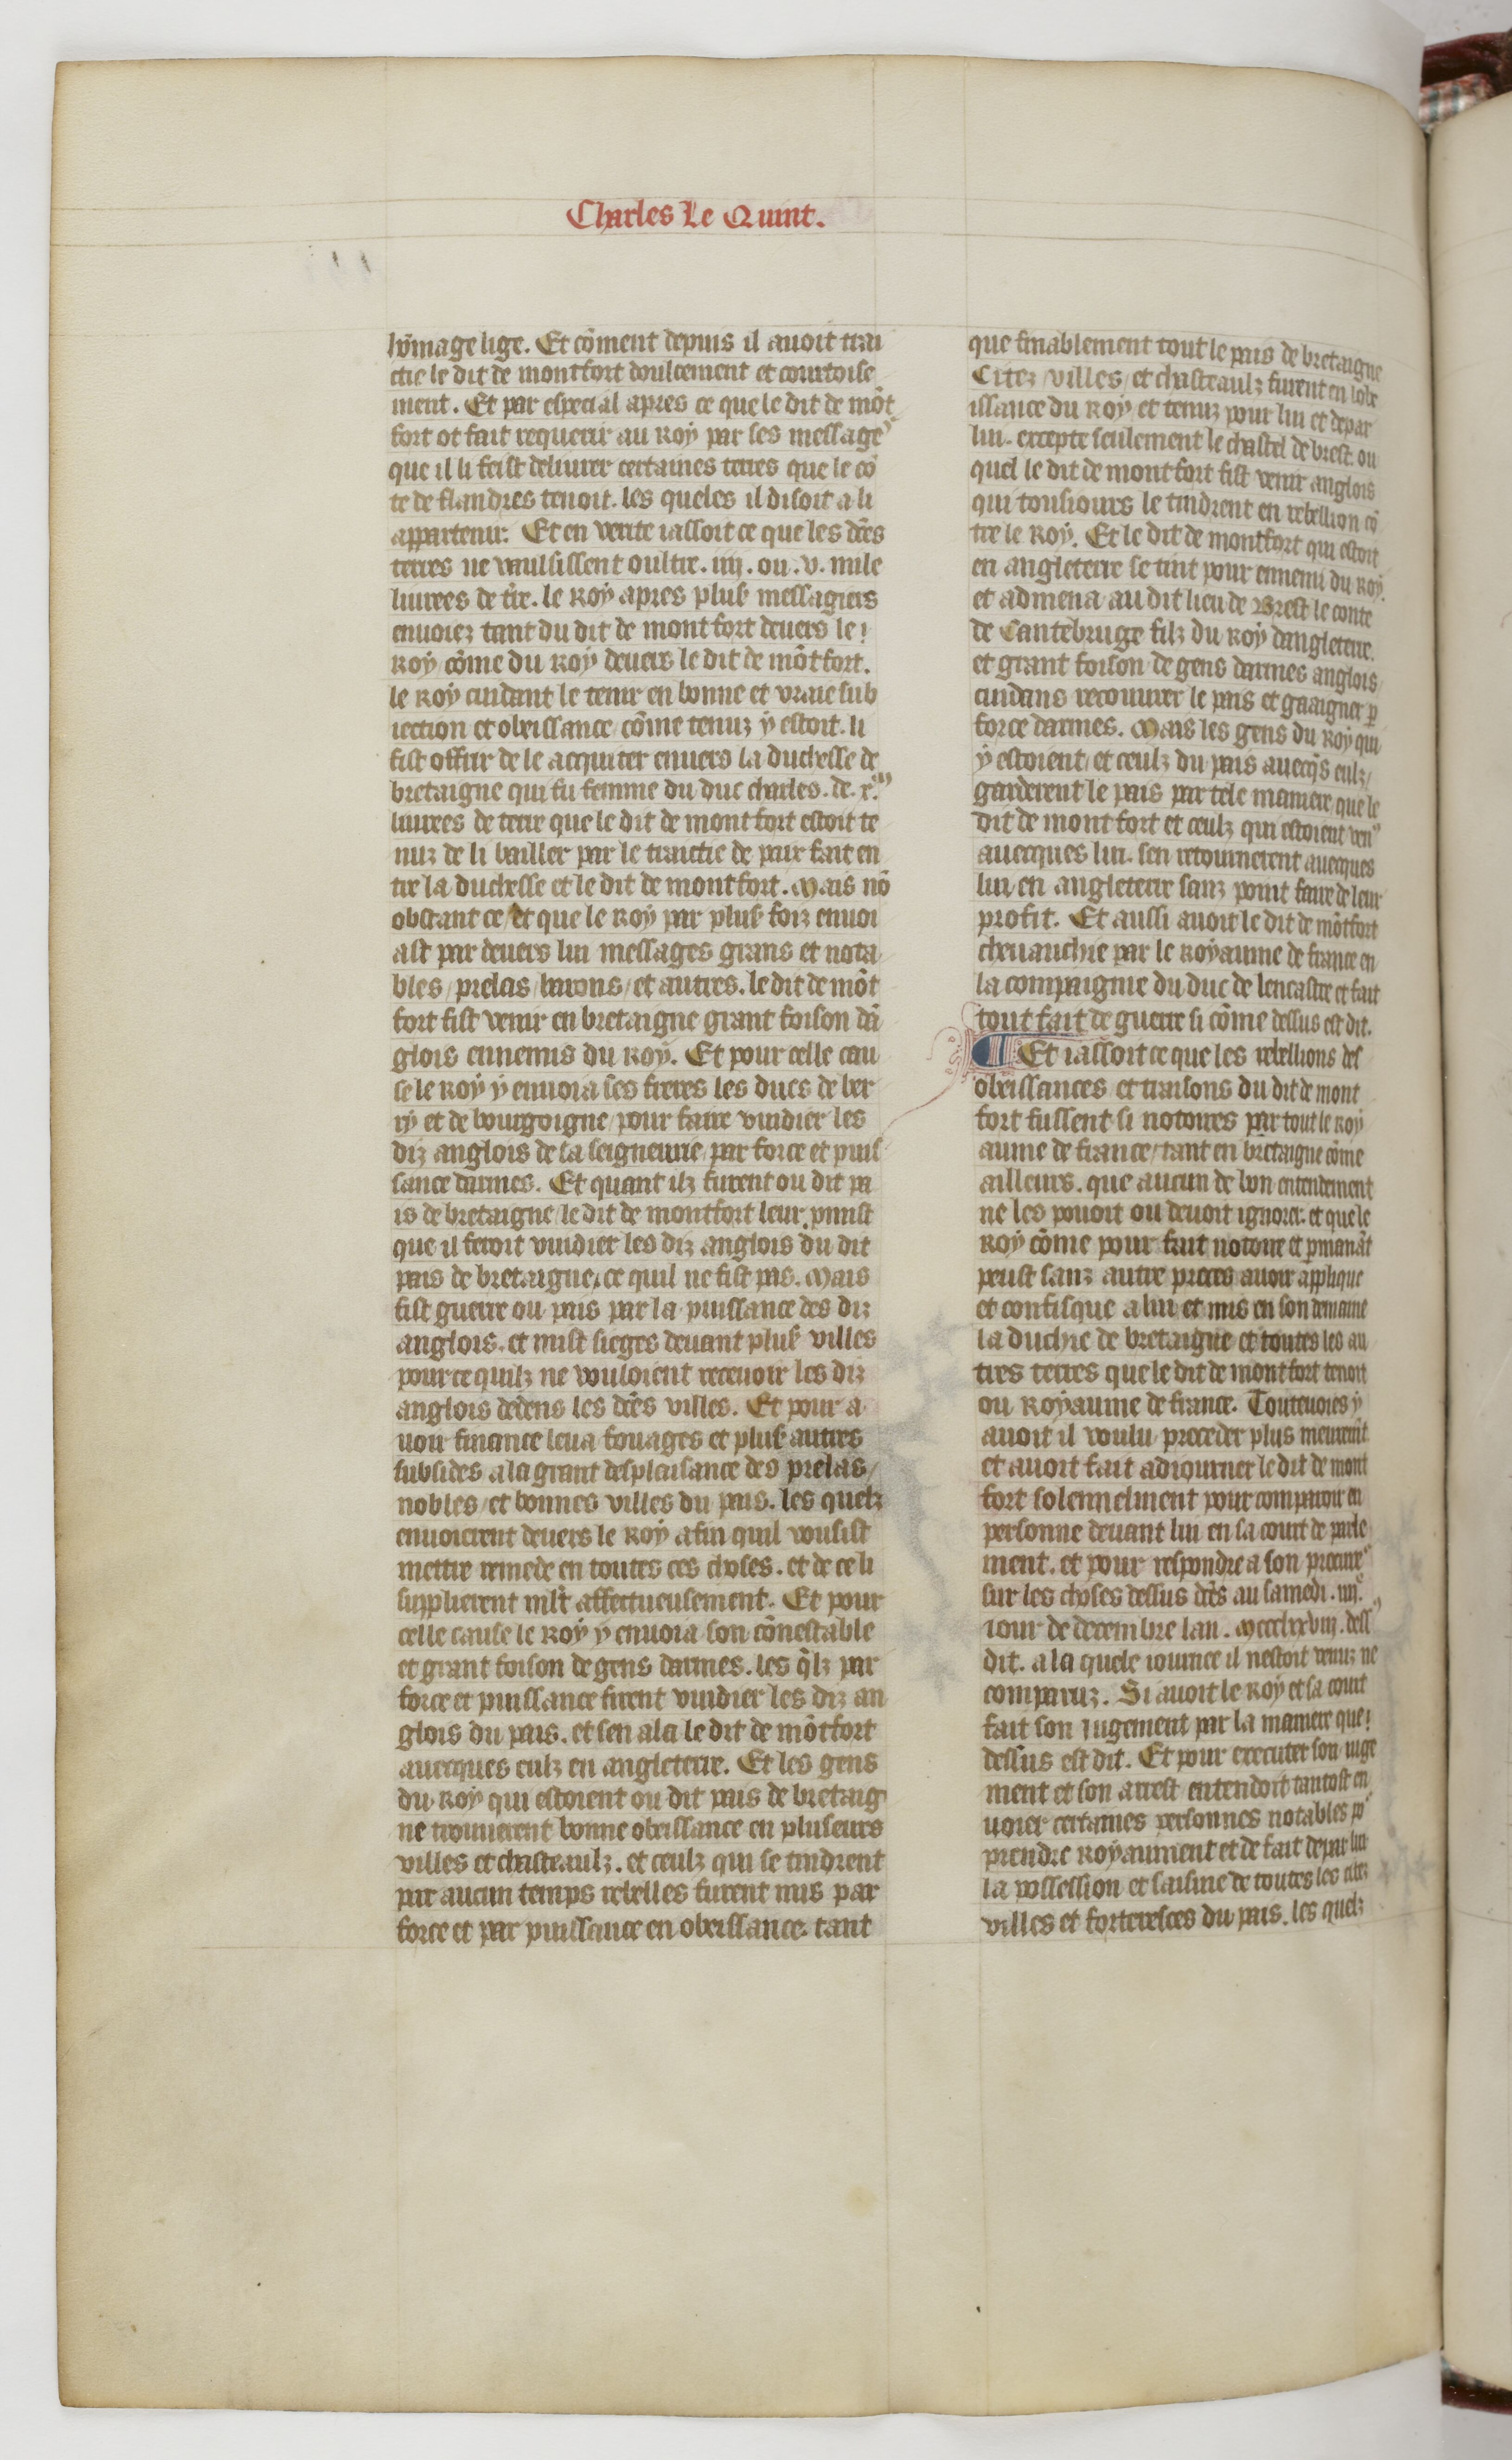 Charles Le Quint.
hõmage lige. Et cõment depuis il auoit trai
ctie le dit de montfort doulcement et courtoise
ment. Et par especial apres ce que le dit de mõt
fort ot fait requerir au Roy par ses message
que il li feist deliurer certaines terres que le cõ
te de flandres tenoit. les queles il disoit a li
appartenir. Et en verite iassoit ce que les dc̃es
terres ne vaulsissent oultre .iiij. ou .v. mile
liurees de tr̃e. le Roy apres plus̉ messagiers
enuoiez tant du dit de montfort deuers le
Roy cõme du Roy deuers le dit de mõtfort.
le Roy cuidant le tenir en bonne et vraie sub
iection et obeissance cõme tenuz y estoit. li
fist offrir de le acquiter enuers la duchesse de
bretaigne qui fu femme du duc charles. de .x.ᵐ
liurees de terre que le dit de montfort estoit te
nuz de li bailler par le traictie de paix fait en
tre la duchesse et le dit de montfort. Mais nõ
obstant ce et que le Roy par plus̉ foiz enuoi
ast par deuers lui messages grans et nota
bles / prelas / barons / et autres. le dit de mõt
fort fist venir en bretaigne grant foison dã
glois ennemis du Roy. Et pour celle cau
se le Roy y enuoia ses freres les ducs de ber
ry et de bourgoigne pour faire vuidier les
diz anglois de sa seigneurie par force et puis
sance darmes. Et quant ilz furent ou dit pa
is de bretaigne le dit de montfort leur ꝓmist
que il feroit vuidier les diz anglois du dit
pais de bretaigne. ce quil ne fist pas. Mais
fist guerre ou pais par la puissance des diz
anglois. et mist sieges deuant plus̉ villes
pour ce quilz ne vouloient receuoir les diz
anglois dedens les dc̃es villes. Et pour a
uoir finance leua fouages et plus̉ autres
subsides a la grant desplaisance des prelas /
nobles / et bonnes villes du pais. les quelz
enuoierent deuers le Roy afin quil vousist
mettre remede en toutes ces choses. et de ce li
supplierent ml̃t affectueusement. Et pour
celle cause le Roy y enuoia son cõnestable
et grant foison de gens darmes. les q̃lz par
force et puissance firent vuidier les diz an
glois du pais. et sen ala le dit de mõtfort
auecques eulz en angleterre. Et les gens
du Roy qui estoient ou dit pais de bretaig
ne trouuerent bonne obeissance en pluseurs
villes et chasteaulz. et ceulz qui se tindrent
par aucun temps rebelles furent mis par
force et par puissance en obeissance. tant
que finablement tout le pais de bretaigne
Citez / villes / et chasteaulz furent en lobe
issance du Roy et tenuz pour lui et depar
lui. excepte seulement le chastel de brest. ou
quel le dit de montfort fist venir anglois
qui tousiours le tindrent en rebellion cõ
tre le Roy. Et le dit de montfort qui estoit
en angleterre se tint pour ennemi du Roy.
et admena au dit lieu de Brest le conte
de Cantebruge filz du Roy dangleterre.
et grant foison de gens darmes anglois
cuidans recouurer le pais et gaaigner ꝑ
force darmes. Mais les gens du Roy qui
y estoient / et ceulz du pais auecq̃s eulz /
garderent le pais par tele maniere que le
dit de montfort et ceulz qui estoient venꝰ
auecques lui. sen retournerent auecques
lui en angleterre sanz point faire de leur
profit. Et aussi auoit le dit de mõtfort
cheuauchie par le Royaume de france en
la compaignie du duc de lencastre et fait
tout fait de guerre si cõme dessus est dit.
¶ Et iassoit ce que les rebellions des
obeissances et traisons du dit de mont
fort fussent si notoires par tout le Roy
aume de france / tant en bretaigne cõme
ailleurs. que aucun de bon entendement
ne les pouoit ou deuoit ignorer. et que le
Roy cõme pour fait notoire et ꝑmanãt
peust sanz autre proces auoir applique
et confisque a lui et mis en son demaine
la duchie de bretaigne et toutes les au
tres terres que le dit de montfort tenoit
ou Royaume de france. Touteuoies y
auoit il voulu proceder plus meuremẽt
et auoit fait adiourner le dit de mont
fort solennelment pour comparoir en
personne deuant lui en sa court de parle
ment. et pour respondre a son procureˀ
sur les choses dessus dc̃es au samedi .iiij.ᵉ
iour de decembre lan .mccclxxviij. dessˀ
dit. a la quele iournee il nestoit venuz ne
comparuz. Si auoit le Roy et sa court
fait son iugement par la maniere que
dessus est dit. Et pour executer son iuge
ment et son arrest entendoit tantost en
uoier certaines personnes notables poˀ
prendre Royaument et de fait depar lui
la possession et saisine de toutes les citez
villes et forteresces du pais. les quelz